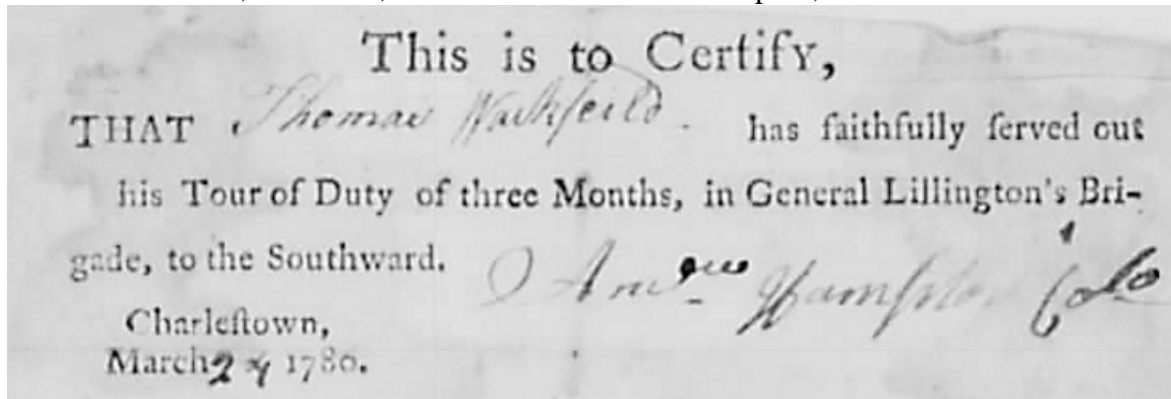 This is to Certify,
THAT Thomas Wackfeild. has faithfully ſerved out
his Tour of Duty of three Months, in General Lillington's Bri-
gade, to the Southward. Andrew Hampton Colo
Charleſtown,
March 24 1780.